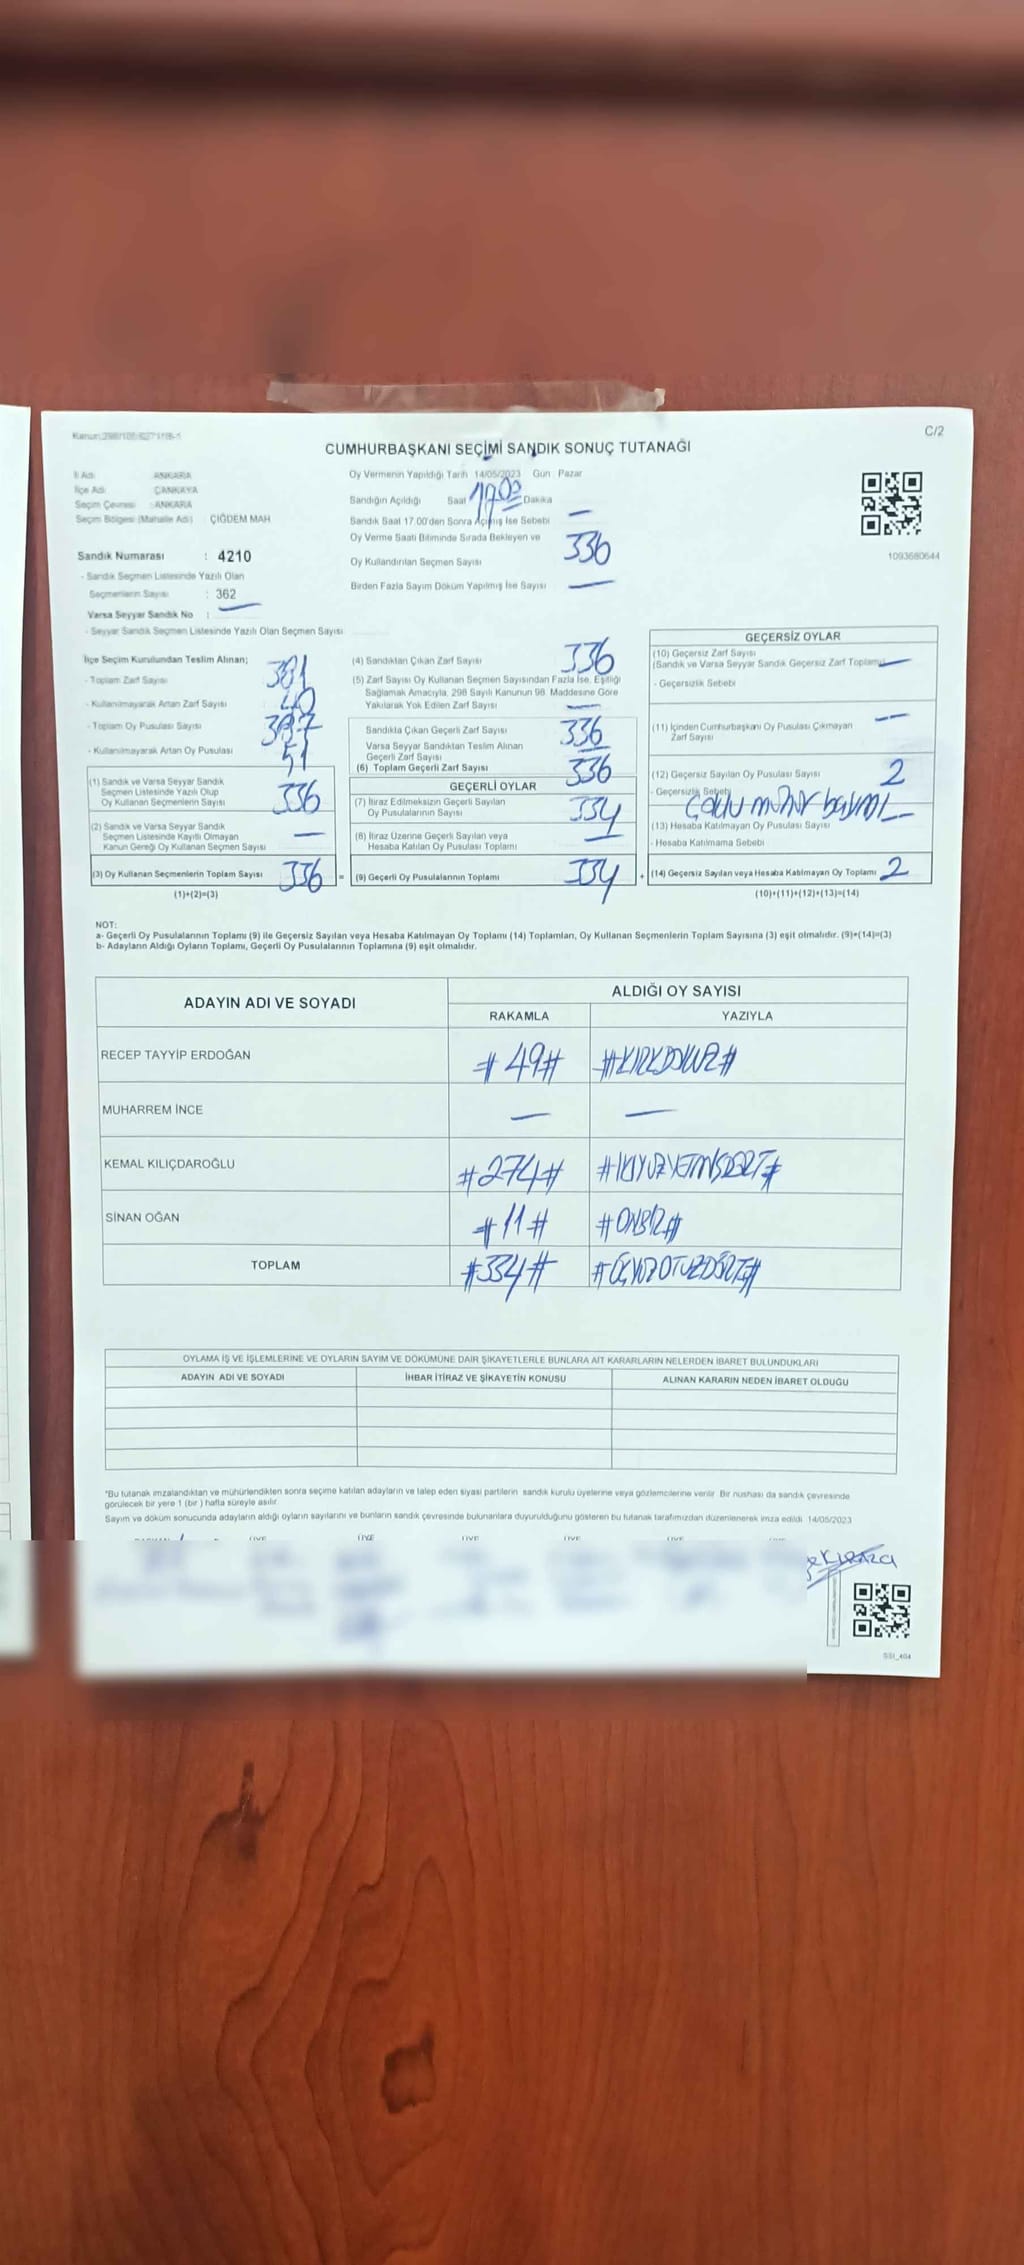 C/2
CUMHURBAŞKANI SEÇİMİ SANDIK SONUÇ TUTANAĞI
İl Adı : ANKARA
İlçe Adı : ÇANKAYA
Seçim Çevresi : ANKARA
Seçim Bölgesi (Mahalle Adı) : ÇİĞDEM MAH
Sandık Numarası : 4210
- Sandık Seçmen Listesinde Yazılı Olan
Seçmenlerin Sayısı : 362
Varsa Seyyar Sandık No : —
- Seyyar Sandık Seçmen Listesinde Yazılı Olan Seçmen Sayısı
Oy Vermenin Yapıldığı Tarih 14/05/2023 Gün : Pazar
Sandığın Açıldığı Saat 17.00 Dakika
Sandık Saat 17.00'den Sonra Açılmış İse Sebebi —
Oy Verme Saati Bitiminde Sırada Bekleyen ve
Oy Kullandırılan Seçmen Sayısı 336
Birden Fazla Sayım Döküm Yapılmış İse Sayısı —
1093680644
İlçe Seçim Kurulundan Teslim Alınan;
- Toplam Zarf Sayısı 381
- Kullanılmayarak Artan Zarf Sayısı
- Toplam Oy Pusulası Sayısı
- Kullanılmayarak Artan Oy Pusulası 51
(1) Sandık ve Varsa Seyyar Sandık
Seçmen Listesinde Yazılı Olup
Oy Kullanan Seçmenlerin Sayısı 336
(2) Sandık ve Varsa Seyyar Sandık
Seçmen Listesinde Kayıtlı Olmayan
Kanun Gereği Oy Kullanan Seçmen Sayısı —
(3) Oy Kullanan Seçmenlerin Toplam Sayısı 336 =
(1)+(2)=(3)
(4) Sandıktan Çıkan Zarf Sayısı 336
(5) Zarf Sayısı Oy Kullanan Seçmen Sayısından Fazla İse, Eşitliği
Sağlamak Amacıyla, 298 Sayılı Kanunun 98. Maddesine Göre
Yakılarak Yok Edilen Zarf Sayısı —
Sandıkta Çıkan Geçerli Zarf Sayısı 336
Varsa Seyyar Sandıktan Teslim Alınan
Geçerli Zarf Sayısı —
(6) Toplam Geçerli Zarf Sayısı 336
GEÇERLİ OYLAR
(7) İtiraz Edilmeksizin Geçerli Sayılan
Oy Pusulalarının Sayısı 334
(8) İtiraz Üzerine Geçerli Sayılan veya
Hesaba Katılan Oy Pusulası Toplamı —
(9) Geçerli Oy Pusulalarının Toplamı 334 +
GEÇERSİZ OYLAR
(10) Geçersiz Zarf Sayısı
(Sandık ve Varsa Seyyar Sandık Geçersiz Zarf Toplamı) —
- Geçersizlik Sebebi
(11) İçinden Cumhurbaşkanı Oy Pusulası Çıkmayan —
Zarf Sayısı
(12) Geçersiz Sayılan Oy Pusulası Sayısı 2
- Geçersizlik Sebebi çoklu mühür
(13) Hesaba Katılmayan Oy Pusulası Sayısı —
- Hesaba Katılmama Sebebi
(14) Geçersiz Sayılan veya Hesaba Katılmayan Oy Toplamı 2
(10)+(11)+(12)+(13)=(14)
NOT:
a- Geçerli Oy Pusulalarının Toplamı (9) ile Geçersiz Sayılan veya Hesaba Katılmayan Oy Toplamı (14) Toplamları, Oy Kullanan Seçmenlerin Toplam Sayısına (3) eşit olmalıdır. (9)+(14)=(3)
b- Adayların Aldığı Oyların Toplamı, Geçerli Oy Pusulalarının Toplamına (9) eşit olmalıdır.
ADAYIN ADI VE SOYADI ALDIĞI OY SAYISI
RAKAMLA YAZIYLA
RECEP TAYYİP ERDOĞAN #49# #KIRKDOKUZ#
MUHARREM İNCE — —
KEMAL KILIÇDAROĞLU #274# #İKİYÜZYETMİŞDÖRT#
SİNAN OĞAN #11# #ONBİR#
TOPLAM #334# #ÜÇYÜZOTUZDÖRT#
OYLAMA İŞ VE İŞLEMLERİNE VE OYLARIN SAYIM VE DÖKÜMÜNE DAİR ŞİKAYETLERLE BUNLARA AİT KARARLARIN NELERDEN İBARET BULUNDUKLARI
ADAYIN ADI VE SOYADI İHBAR İTİRAZ VE ŞİKAYETİN KONUSU ALINAN KARARIN NEDEN İBARET OLDUĞU
*Bu tutanak imzalandıktan ve mühürlendikten sonra seçime katılan adayların ve talep eden siyasi partilerin sandık kurulu üyelerine veya gözlemcilerine verilir. Bir nüshası da sandık çevresinde
görülecek bir yere 1 (bir) hafta süreyle asılır.
Sayım ve döküm sonucunda adayların aldığı oyların sayılarını ve bunların sandık çevresinde bulunanlara duyurulduğunu gösteren bu tutanak tarafımızdan düzenlenerek imza edildi. 14/05/2023
ÜYE ÜYE ÜYE ÜYE ÜYE